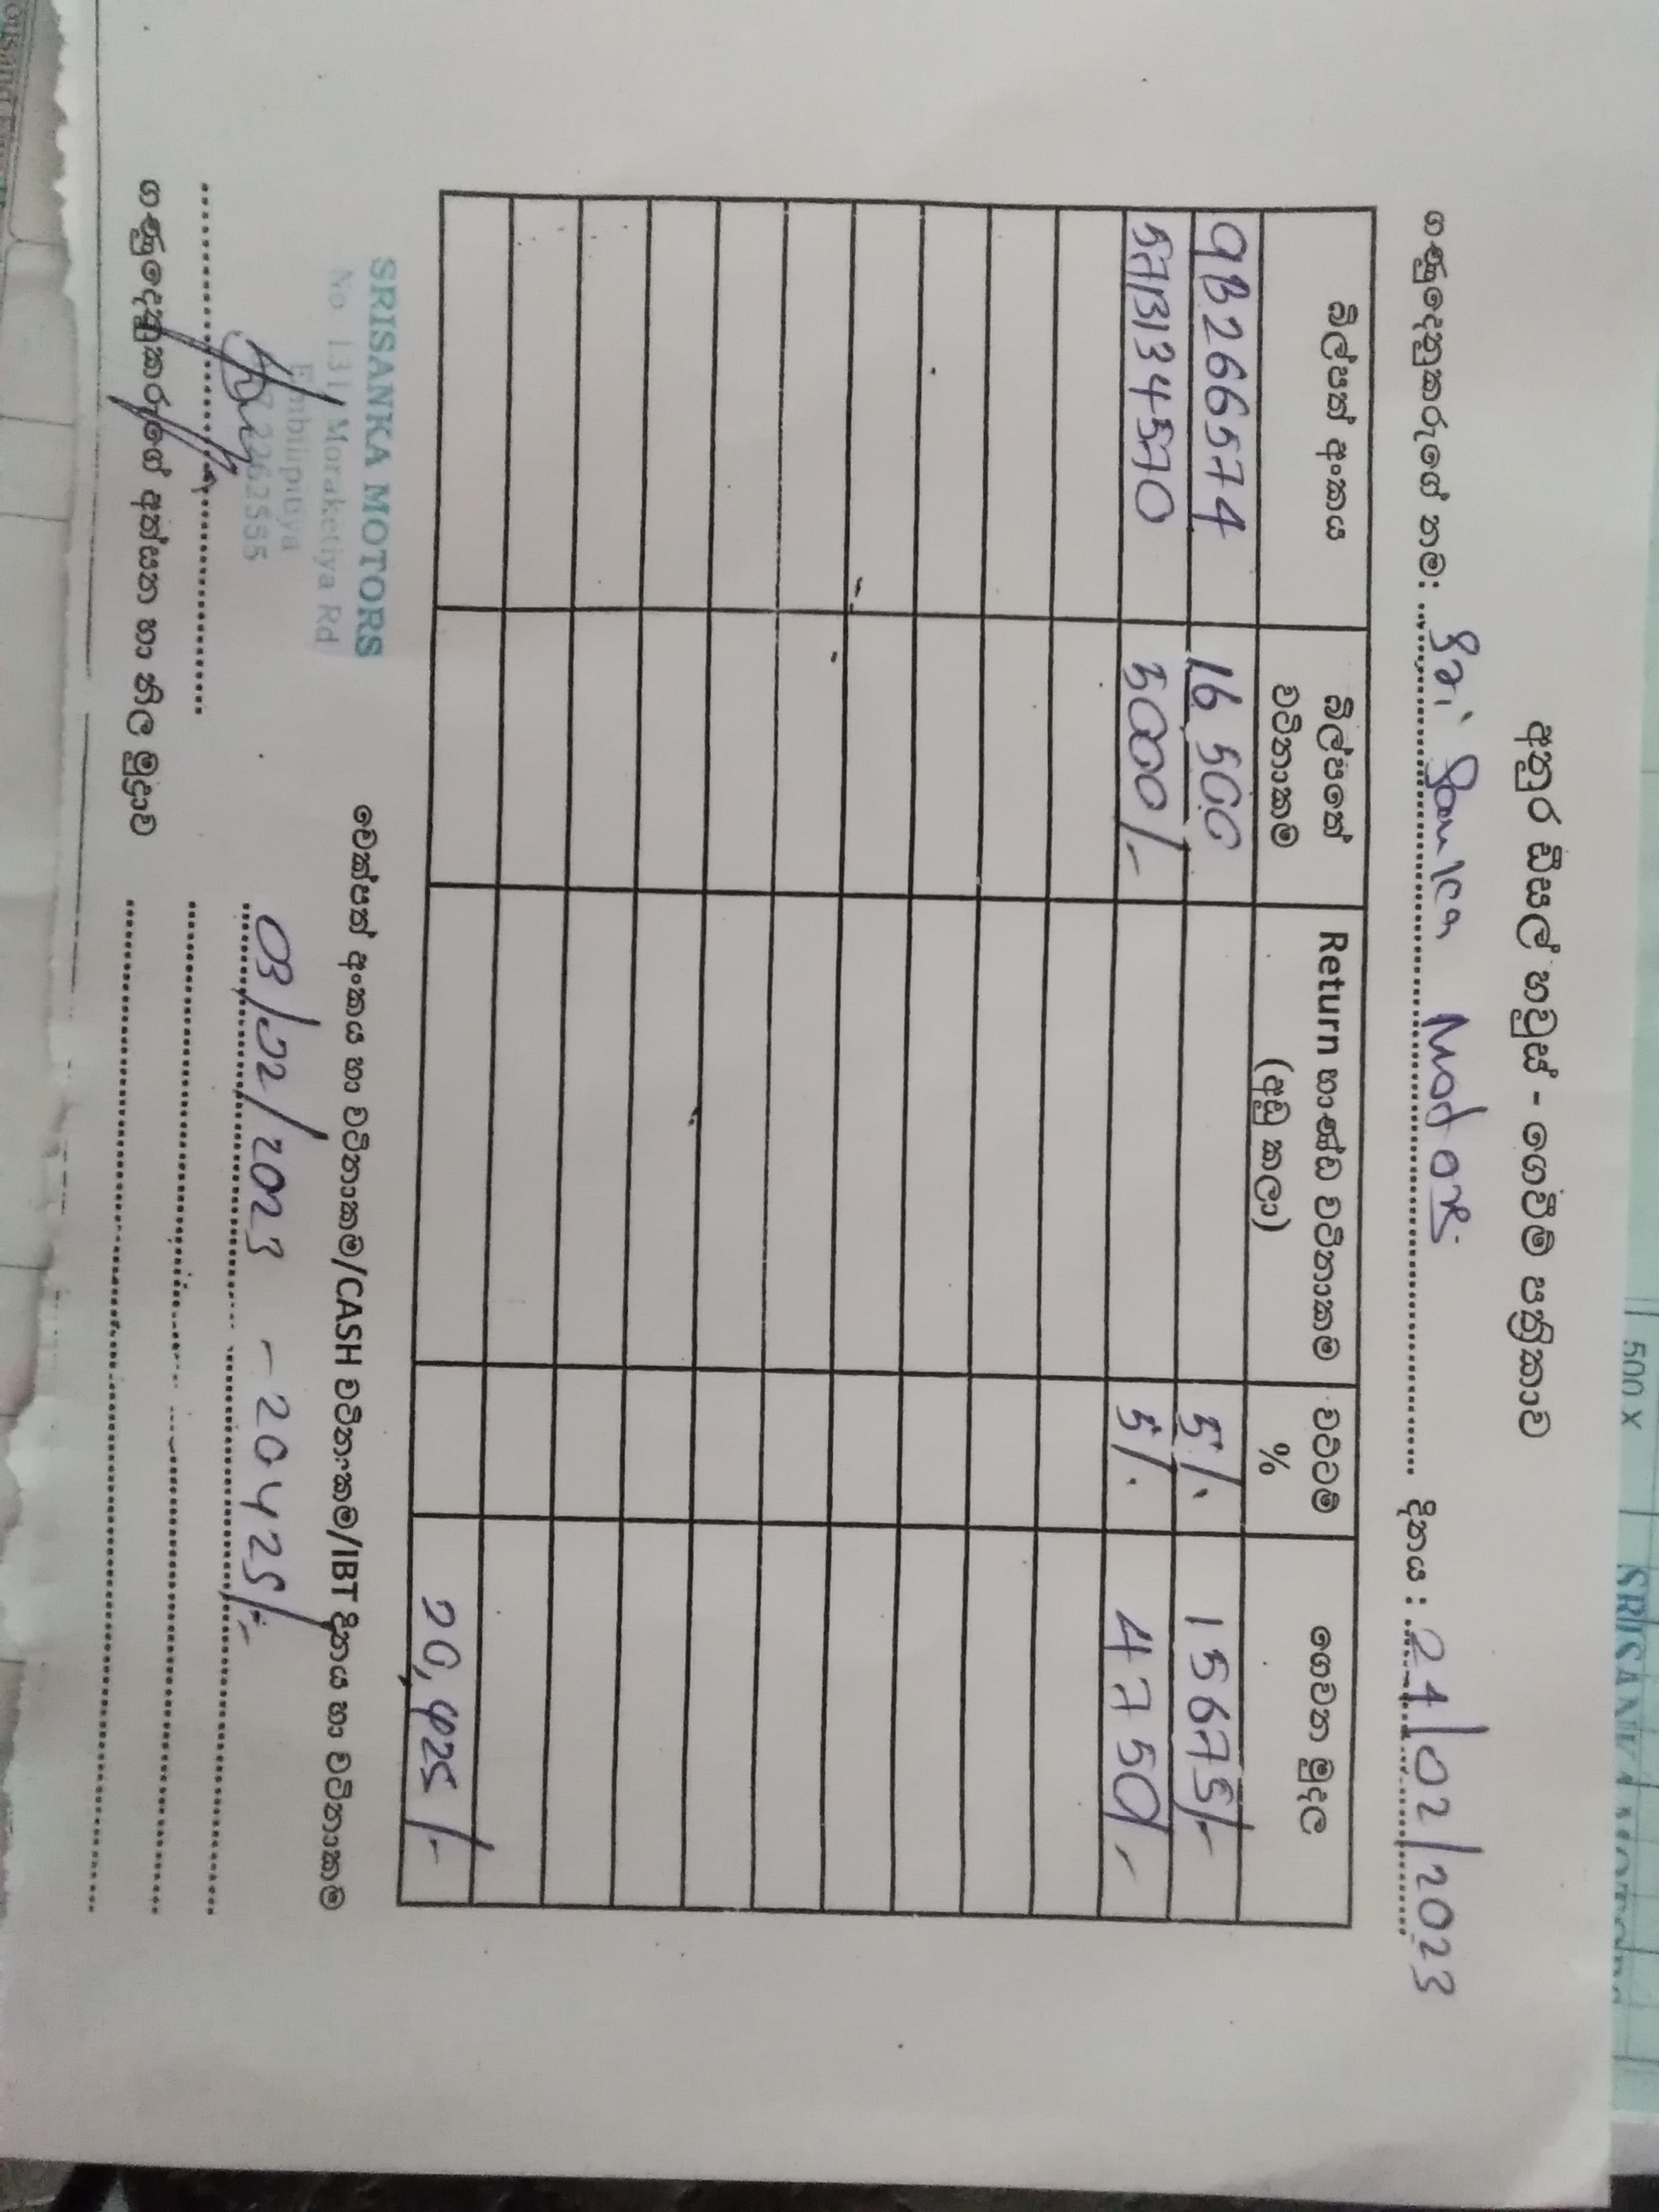 500 X
SRISANKA MOTORS
අනුර ඩීසල් හවුස් - ගෙවීම් පත්‍රිකාව
ගණුදෙනුකරුගේ නම: Sri Sanka Motors දිනය : 24/02/2023
බිල්පත් අංකය බිල්පතේ වටිනාකම Return භාණ්ඩ වටිනාකම (අඩු කලා) වට්ටම් % ගෙවන මුදල
9B266574 16 500 5%. 15675/-
5AB134570 5000/- 5%. 4750/-
20,425/-
SRISANKA MOTORS
No 131, Moraketiya Rd
Embilipitiya
2262555
ගණුදෙනුකරුගේ අත්සන හා නිල මුද්‍රාව
චෙක්පත් අංකය හා වටිනාකම/CASH වටිනාකම/IBT දිනය හා වටිනාකම
03/02/2023 - 20425/-